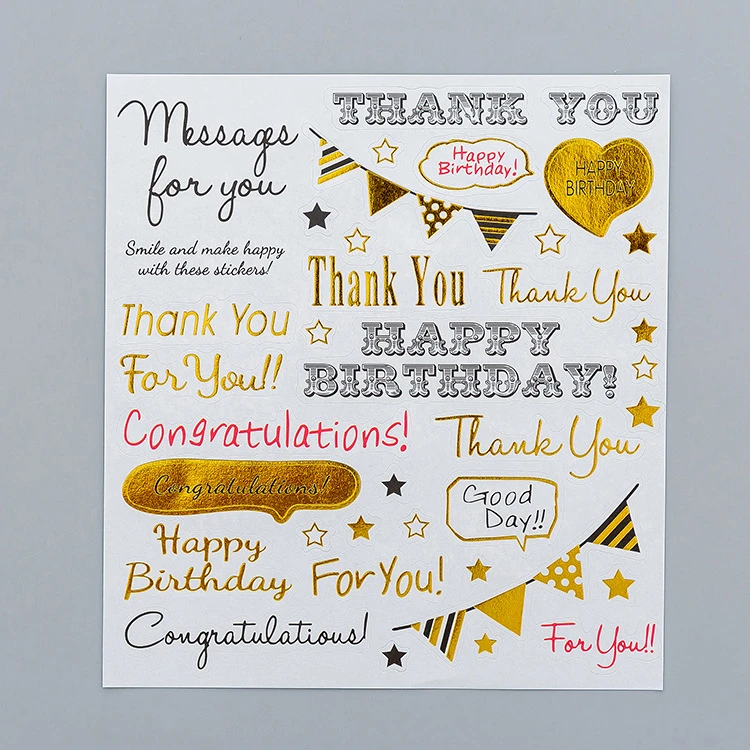 Messages
for you
Smile and make happy
with these stickers!
THANK YOU
Happy
Birthday!
HAPPY
BIRTHDAY
Thank You
Thank You
Thank You
For You!!
HAPPY
BIRTHDAY!
Congratulations!
Thank You
Congratulations!
Good
Day!!
Happy
Birthday
For You!
Congratulations!
For You!!